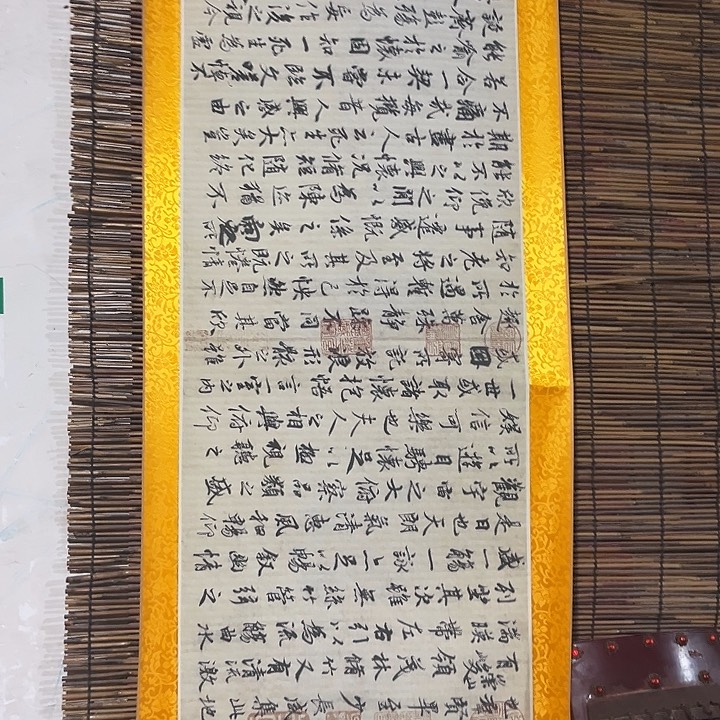 也羣賢畢至少長咸集此地
有崇山峻領茂林脩竹又有清流激
湍暎帶左右引以為流觴曲水
列坐其次雖無絲竹管弦之
盛一觴一詠亦足以暢叙幽情
是日也天朗氣清惠風和暢仰
觀宇宙之大俯察品類之盛
所以遊目騁懷足以極視聽之
娛信可樂也夫人之相與俯仰
一世或取諸懷抱悟言一室之內
或因寄所託放浪形骸之外雖
趣舍萬殊靜躁不同當其欣
於所遇蹔得於己怏然自足不
知老之將至及其所之既惓情
隨事遷感慨係之矣向之所
欣俛仰之閒以為陳迹猶不
能不以之興懷況脩短隨化終
期於盡古人云死生亦大矣豈
不痛哉每攬昔人興感之由
若合一契未嘗不臨文嗟悼不
能喻之於懷固知一死生為虛
誕齊彭殤為妄作後之視今